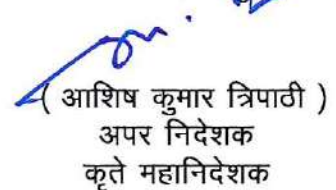 ( आशिष कुमार त्रिपाठी )
अपर निदेशक
कृते महानिदेशक